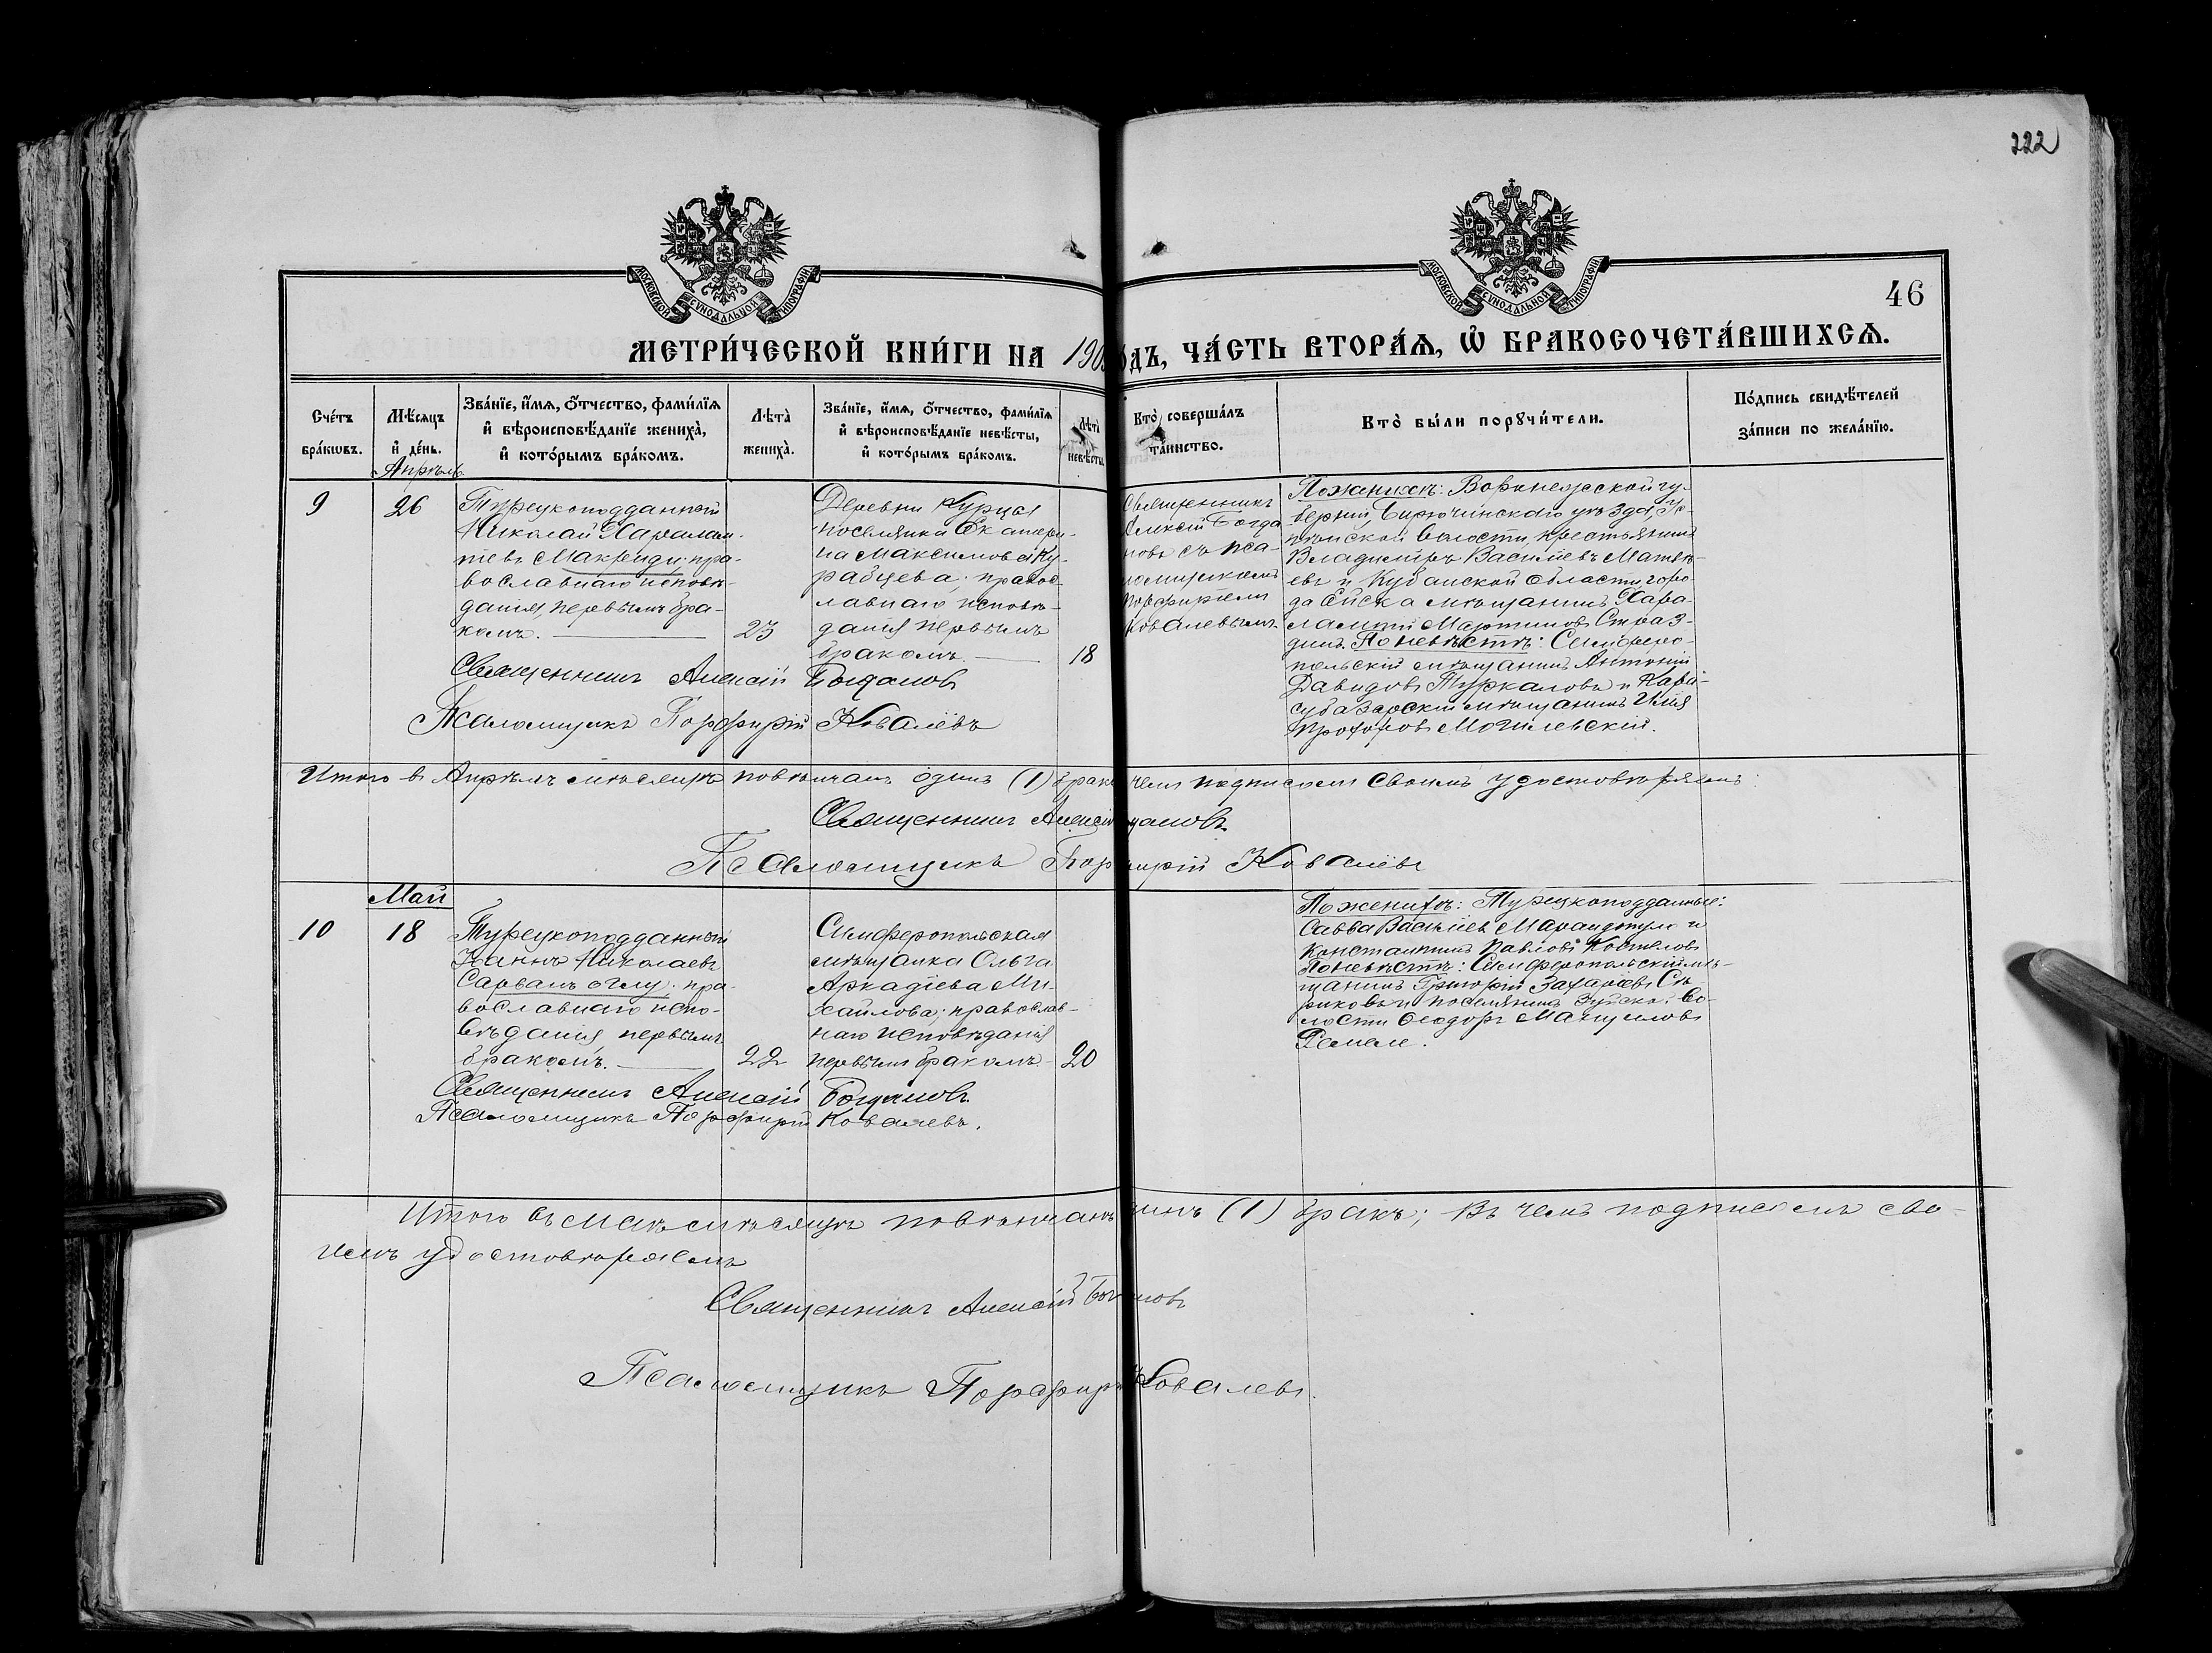 222
МОСКОВСКОЙ СѴНОДАЛЬНОЙ ТИПОГРАФІИ
МОСКОВСКОЙ СѴНОДАЛЬНОЙ ТИПОГРАФІИ
46
МЕТРИ́ЧЕСКОЙ КНИ́ГИ НА 190
ДЪ, ЧА́СТЬ ВТОРА́Ѧ, Ѽ БРАКОСОЧЕТА́ВШИХСѦ.
Сче́тъ
бра́кѡвъ.
Мѣ́сѧцъ
и҆ де́нь.
Зва́нїе, и҆́мѧ, ѻ҆́тчество, фами́лїѧ
и҆ вѣроисповѣ́данїе жениха̀,
и҆ кото́рымъ бра́комъ.
Лѣ́та̀
жениха̀.
Зва́нїе, и҆́мѧ, ѻ҆́тчество, фами́лїѧ
и҆ вѣроисповѣ́данїе невѣ́сты,
и҆ кото́рымъ бра́комъ.
Лѣ́та̀
невѣ́сты
Кто̀ соверша́лъ
та́инство.
Кто̀ бы́ли порꙋчи́тели.
По́дпись свидѣ́телей
за́писи по жела́нїю.
Апрѣль
9
26
Турецкоподданный
Николай Харалам-
піевъ Макриди; пра-
вославнаго исповѣ-
данія, первымъ бра-
комъ.
23
Деревни Курцы
поселянка Екатери-
на Максимова Ку-
рабцева; правос-
лавнаго исповѣ-
данія первымъ
бракомъ
18
Священникъ
Алексій Богда
новъ съ пса-
ломщикомъ
Порфиріем
Ковалевымъ.
По женихѣ: Воронежской гу-
берніи, Бирючинскаго уѣзда,
волости, крестьянинъ
Владиміръ Васильевъ Матвѣ-
евъ и Кубанской области горо-
да Ейска мѣщанинъ Хара-
лампій Мартиновъ
По невѣстѣ: Симферо-
польскій мѣщанинъ Антоній
Давидовъ Туркаловъ и Кара-
субазарскій мѣщанинъ Илія
Прохоровъ Могилевскій.
Священникъ Алексій Богдановъ
Псаломщикъ Порфирій Ковалёвъ
Итого въ Апрѣлѣ мѣсяцѣ повѣнчанъ одинъ (1) бракъ чемъ подписомъ своимъ удостовѣряемъ:
Священникъ Алексій
Псаломщикъ Порфирій Ковалёвъ
Май
10
18
Турецкоподданный
Іоаннъ Николаевъ
Сарванъ оглу; пра-
вославнаго испо-
вѣданія, первымъ
бракомъ.
22
Симферопольская
мѣщанка Ольга
Аркадіева Ми-
хайлова; православ-
наго исповѣданія
первымъ бракомъ
20
По женихѣ: Турецкоподданные:
Савва Васильевъ и
Константинъ Павловъ
По невѣстѣ: Симферопольскій мѣ-
щанинъ Григорій Захаріевъ
и поселянинъ Зуйской во-
лости Ѳеодоръ
Священникъ Алексій Богдановъ
Псаломщикъ Порфирій Ковалевъ.
Итого въ Маѣ мѣсяцѣ повѣнчанъ динъ (1) бракъ; въ чемъ подписомъ сво-
имъ удостовѣряемъ
Священникъ Алексій
Псаломщикъ Порфирій Ковалевъ.